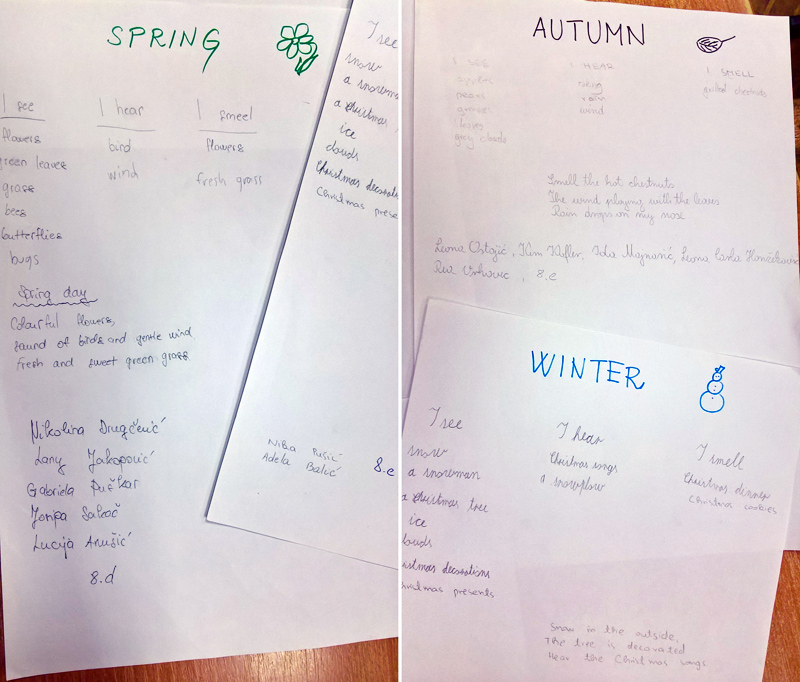 SPRING
I see
flowers
green leaves
grass
bees
butterflies
bugs
I hear
bird
wind
I smeel
flowers
fresh grass
Spring day
Colourful flowers,
sound of birds and gentle wind
Fresh and sweet green grass
Nikolina
Lany Jakopović
Gabriela Puškar
Josipa
Lucija Anušić
8.d
I see
snow
a snowman
a christmas
ice
clouds
Christmas decorations
Christmas prese
Adela Balić
8.e
AUTUMN
I SEE
apples
pears
grapes
leaves
grey clouds
I HEAR
rain
wind
I SMELL
grilled chestnuts
Smell the hot chestnuts
The wind playing with the leaves
Rain drops on my nose
Leona Ostojić, Kim Kefler, Iva Majnarić, Leona Carla
Rea Vrhovec, 8.e
WINTER
I see
snow
a snowman
a christmas tree
ice
louds
istmas decorations
hristmas presents
I hear
Christmas songs
a snowplow
I smell
Christmas dinner
Christmas cookies
Snow in the outside,
The tree is decorated
Hear the Christmas songs